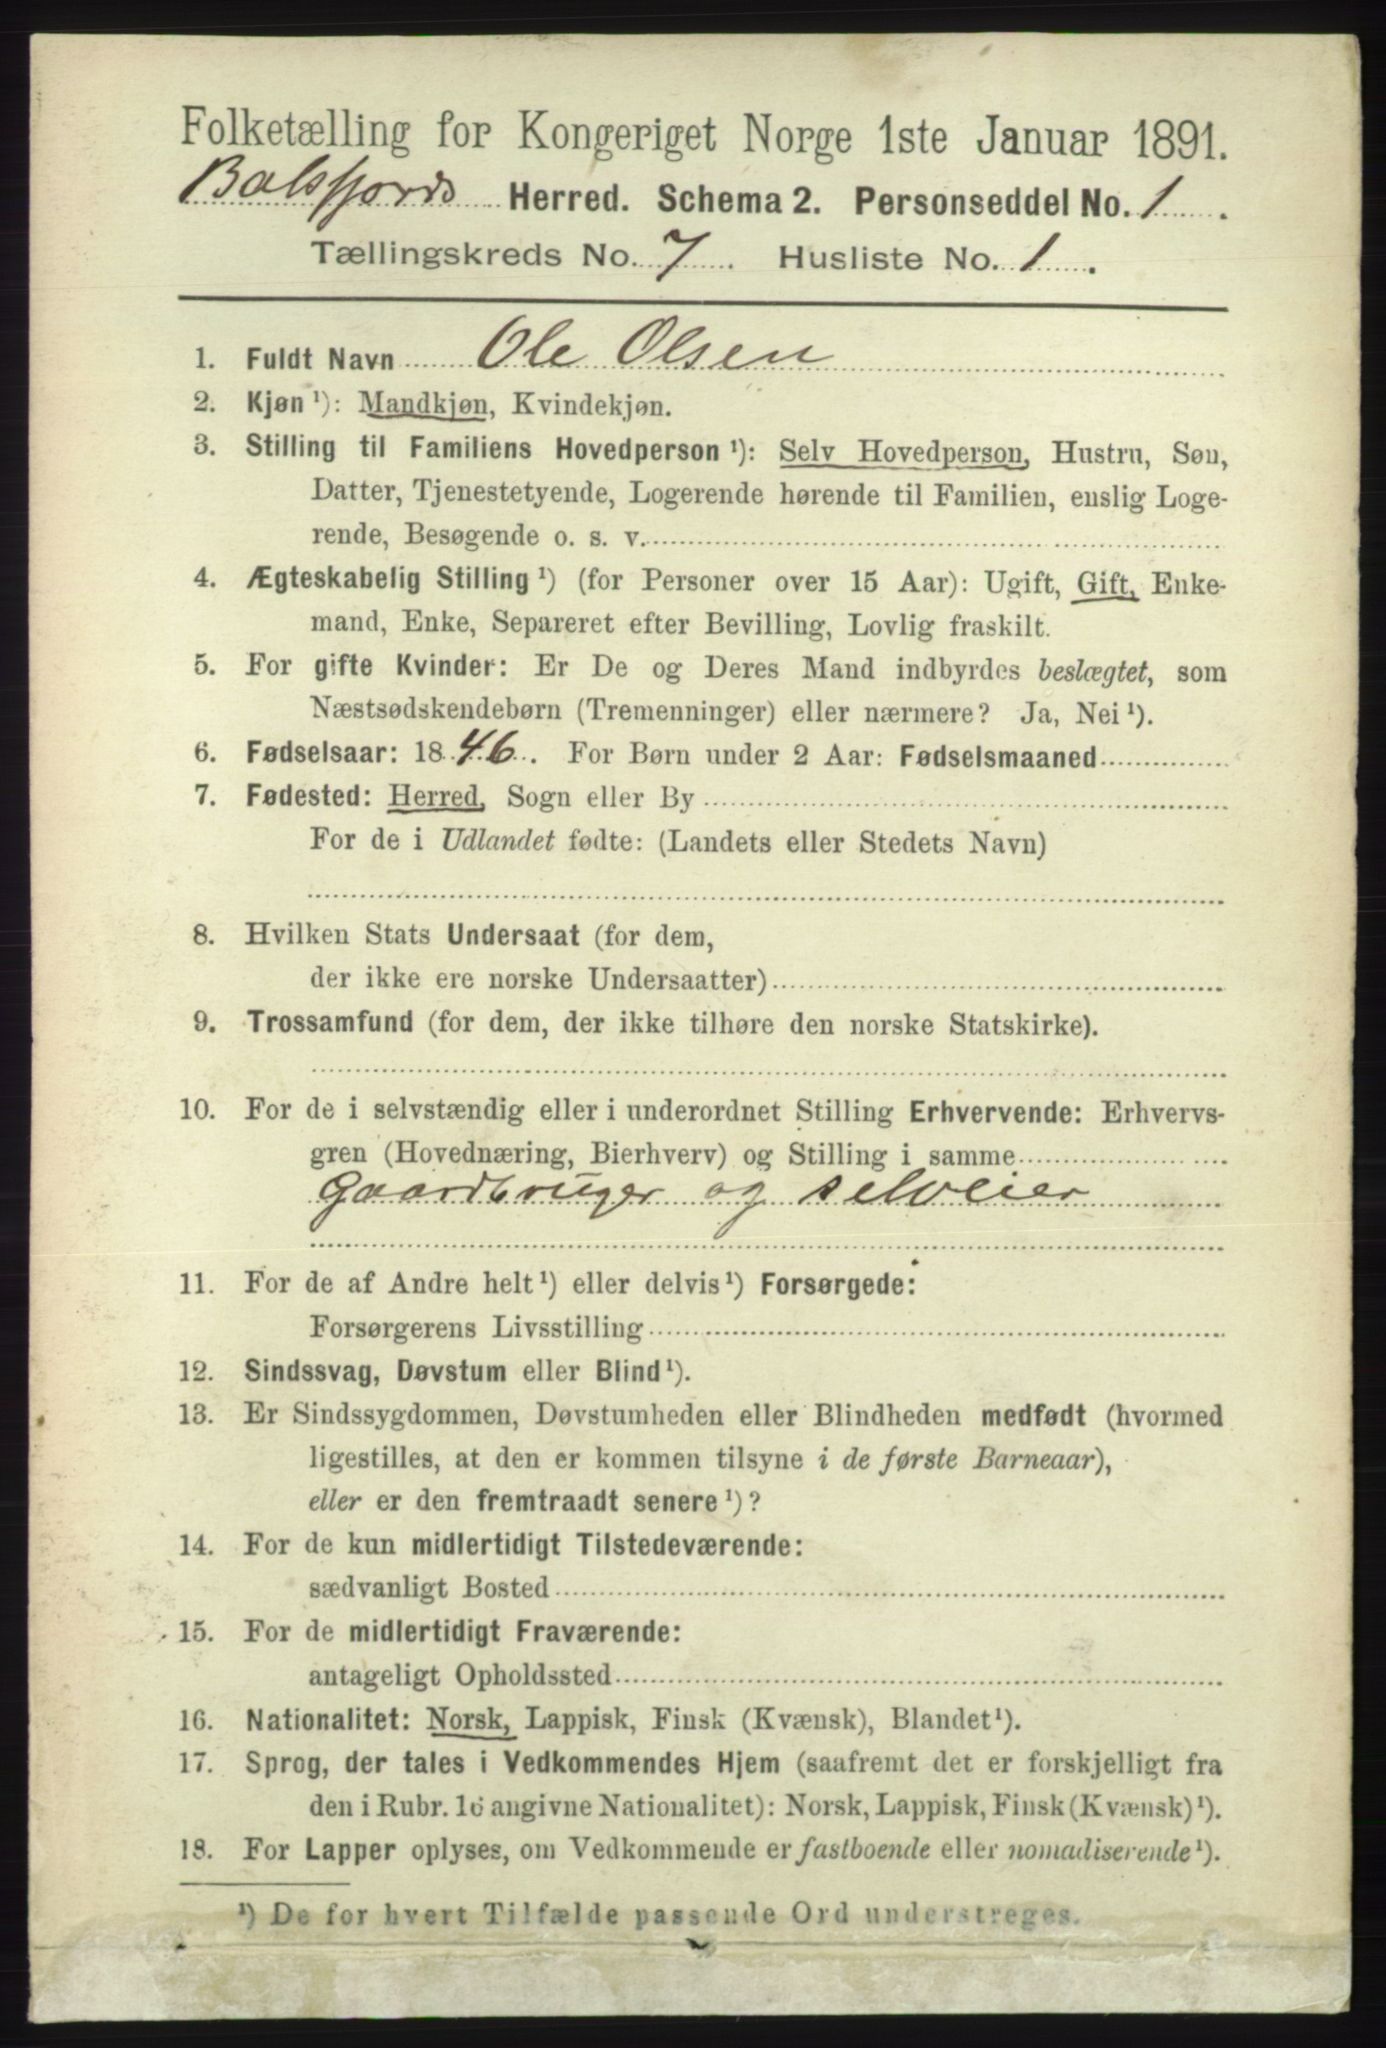 Folketælling for Kongeriget Norge 1ste Januar 1891.
Balsfjords Herred. Schema 2. Personseddel No. 1.
Tællingskreds No. 7. Husliste No. 1.
1. Fuldt Navn Ole Olsen
2. Kjøn ¹): Mandkjøn, Kvindekjøn.
3. Stilling til Familiens Hovedperson ¹): Selv Hovedperson, Hustru, Søn,
Datter, Tjenestetyende, Logerende hørende til Familien, enslig Loge-
rende, Besøgende o. s. v.
4. Ægteskabelig Stilling ¹) (for Personer over 15 Aar): Ugift, Gift, Enke-
mand, Enke, Separeret efter Bevilling, Lovlig fraskilt.
5. For gifte Kvinder: Er De og Deres Mand indbyrdes beslægtet, som
Næstsødskendebørn (Tremenninger) eller nærmere? Ja, Nei ¹).
6. Fødselsaar: 1846. For Børn under 2 Aar: Fødselsmaaned
7. Fødested: Herred, Sogn eller By
For de i Udlandet fødte: (Landets eller Stedets Navn)
8. Hvilken Stats Undersaat (for dem,
der ikke ere norske Undersaatter)
9. Trossamfund (for dem, der ikke tilhøre den norske Statskirke).
10. For de i selvstændig eller i underordnet Stilling Erhvervende: Erhvervs-
gren (Hovednæring, Bierhverv) og Stilling i samme
Gaardbruger og selveier
11. For de af Andre helt ¹) eller delvis ¹) Forsørgede:
Forsørgerens Livsstilling
12. Sindssvag, Døvstum eller Blind ¹).
13. Er Sindssygdommen, Døvstumheden eller Blindheden medfødt (hvormed
ligestilles, at den er kommen tilsyne i de første Barneaar),
eller er den fremtraadt senere ¹)?
14. For de kun midlertidigt Tilstedeværende:
sædvanligt Bosted
15. For de midlertidigt Fraværende:
antageligt Opholdssted
16. Nationalitet: Norsk, Lappisk, Finsk (Kvænsk), Blandet ¹).
17. Sprog, der tales i Vedkommendes Hjem (saafremt det er forskjelligt fra
den i Rubr. 16 angivne Nationalitet): Norsk, Lappisk, Finsk (Kvænsk) ¹).
18. For Lapper oplyses, om Vedkommende er fastboende eller nomadiserende ¹).
¹) De for hvert Tilfælde passende Ord understreges.